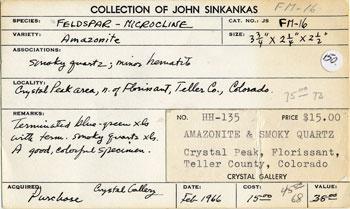 COLLECTION OF JOHN SINKANKAS FM-16
SPECIES: FELDSPAR - MICROCLINE CAT. NO. JS FM-16
VARIETY: Amazonite SIZE: 3 3/4" X 2 1/4" X 2 1/2"
ASSOCIATIONS:
smoky quartz; minor hematite
LOCALITY:
Crystal Peak area, n. of Florissant, Teller Co., Colorado.
75.00 72
REMARKS:
Terminated blue-green xls
with term. smoky quartz xls.
A good, colorful specimen.
NO. HH-135 PRICE $15.00
AMAZONITE & SMOKY QUARTZ
Crystal Peak, Florissant,
Teller County, Colorado
CRYSTAL GALLERY
ACQUIRED: Purchase Crystal Gallery DATE Feb 1966 COST 15.00 45.00 68 VALUE 35.00